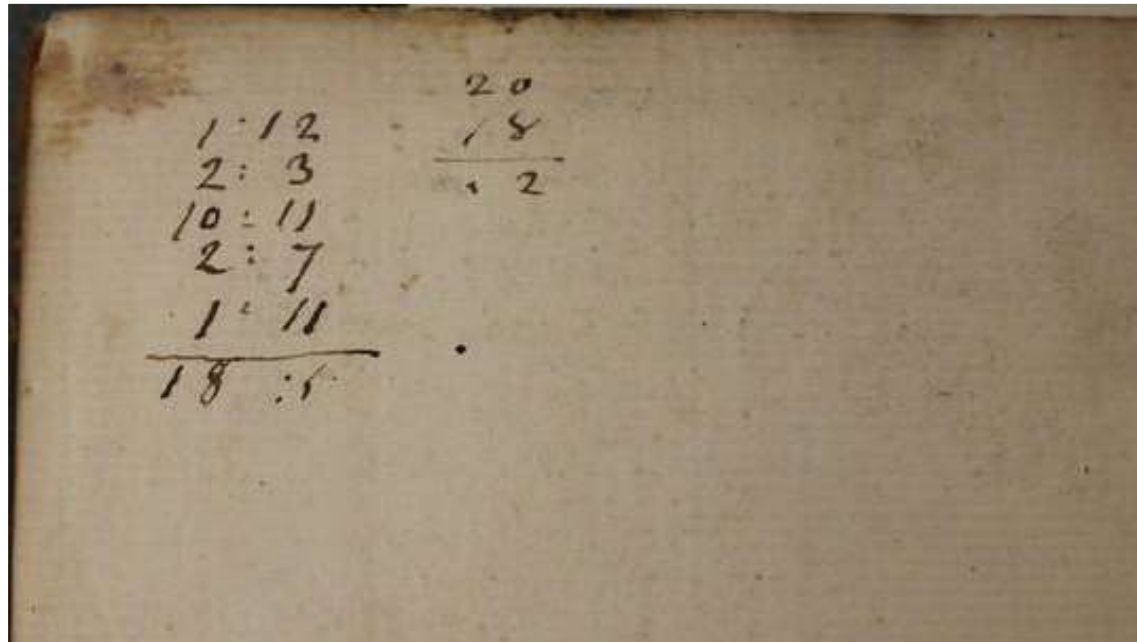 1:12
2: 3
10:11
2: 7
1:11
18 :
20
18
. 2